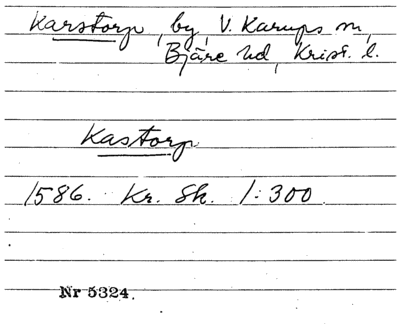 Karstorp, by, V. Karups sn,
Bjäre hd, Krist. l.
Kastorp
1586. Kr. Sk. 1:300
Nr 5324.